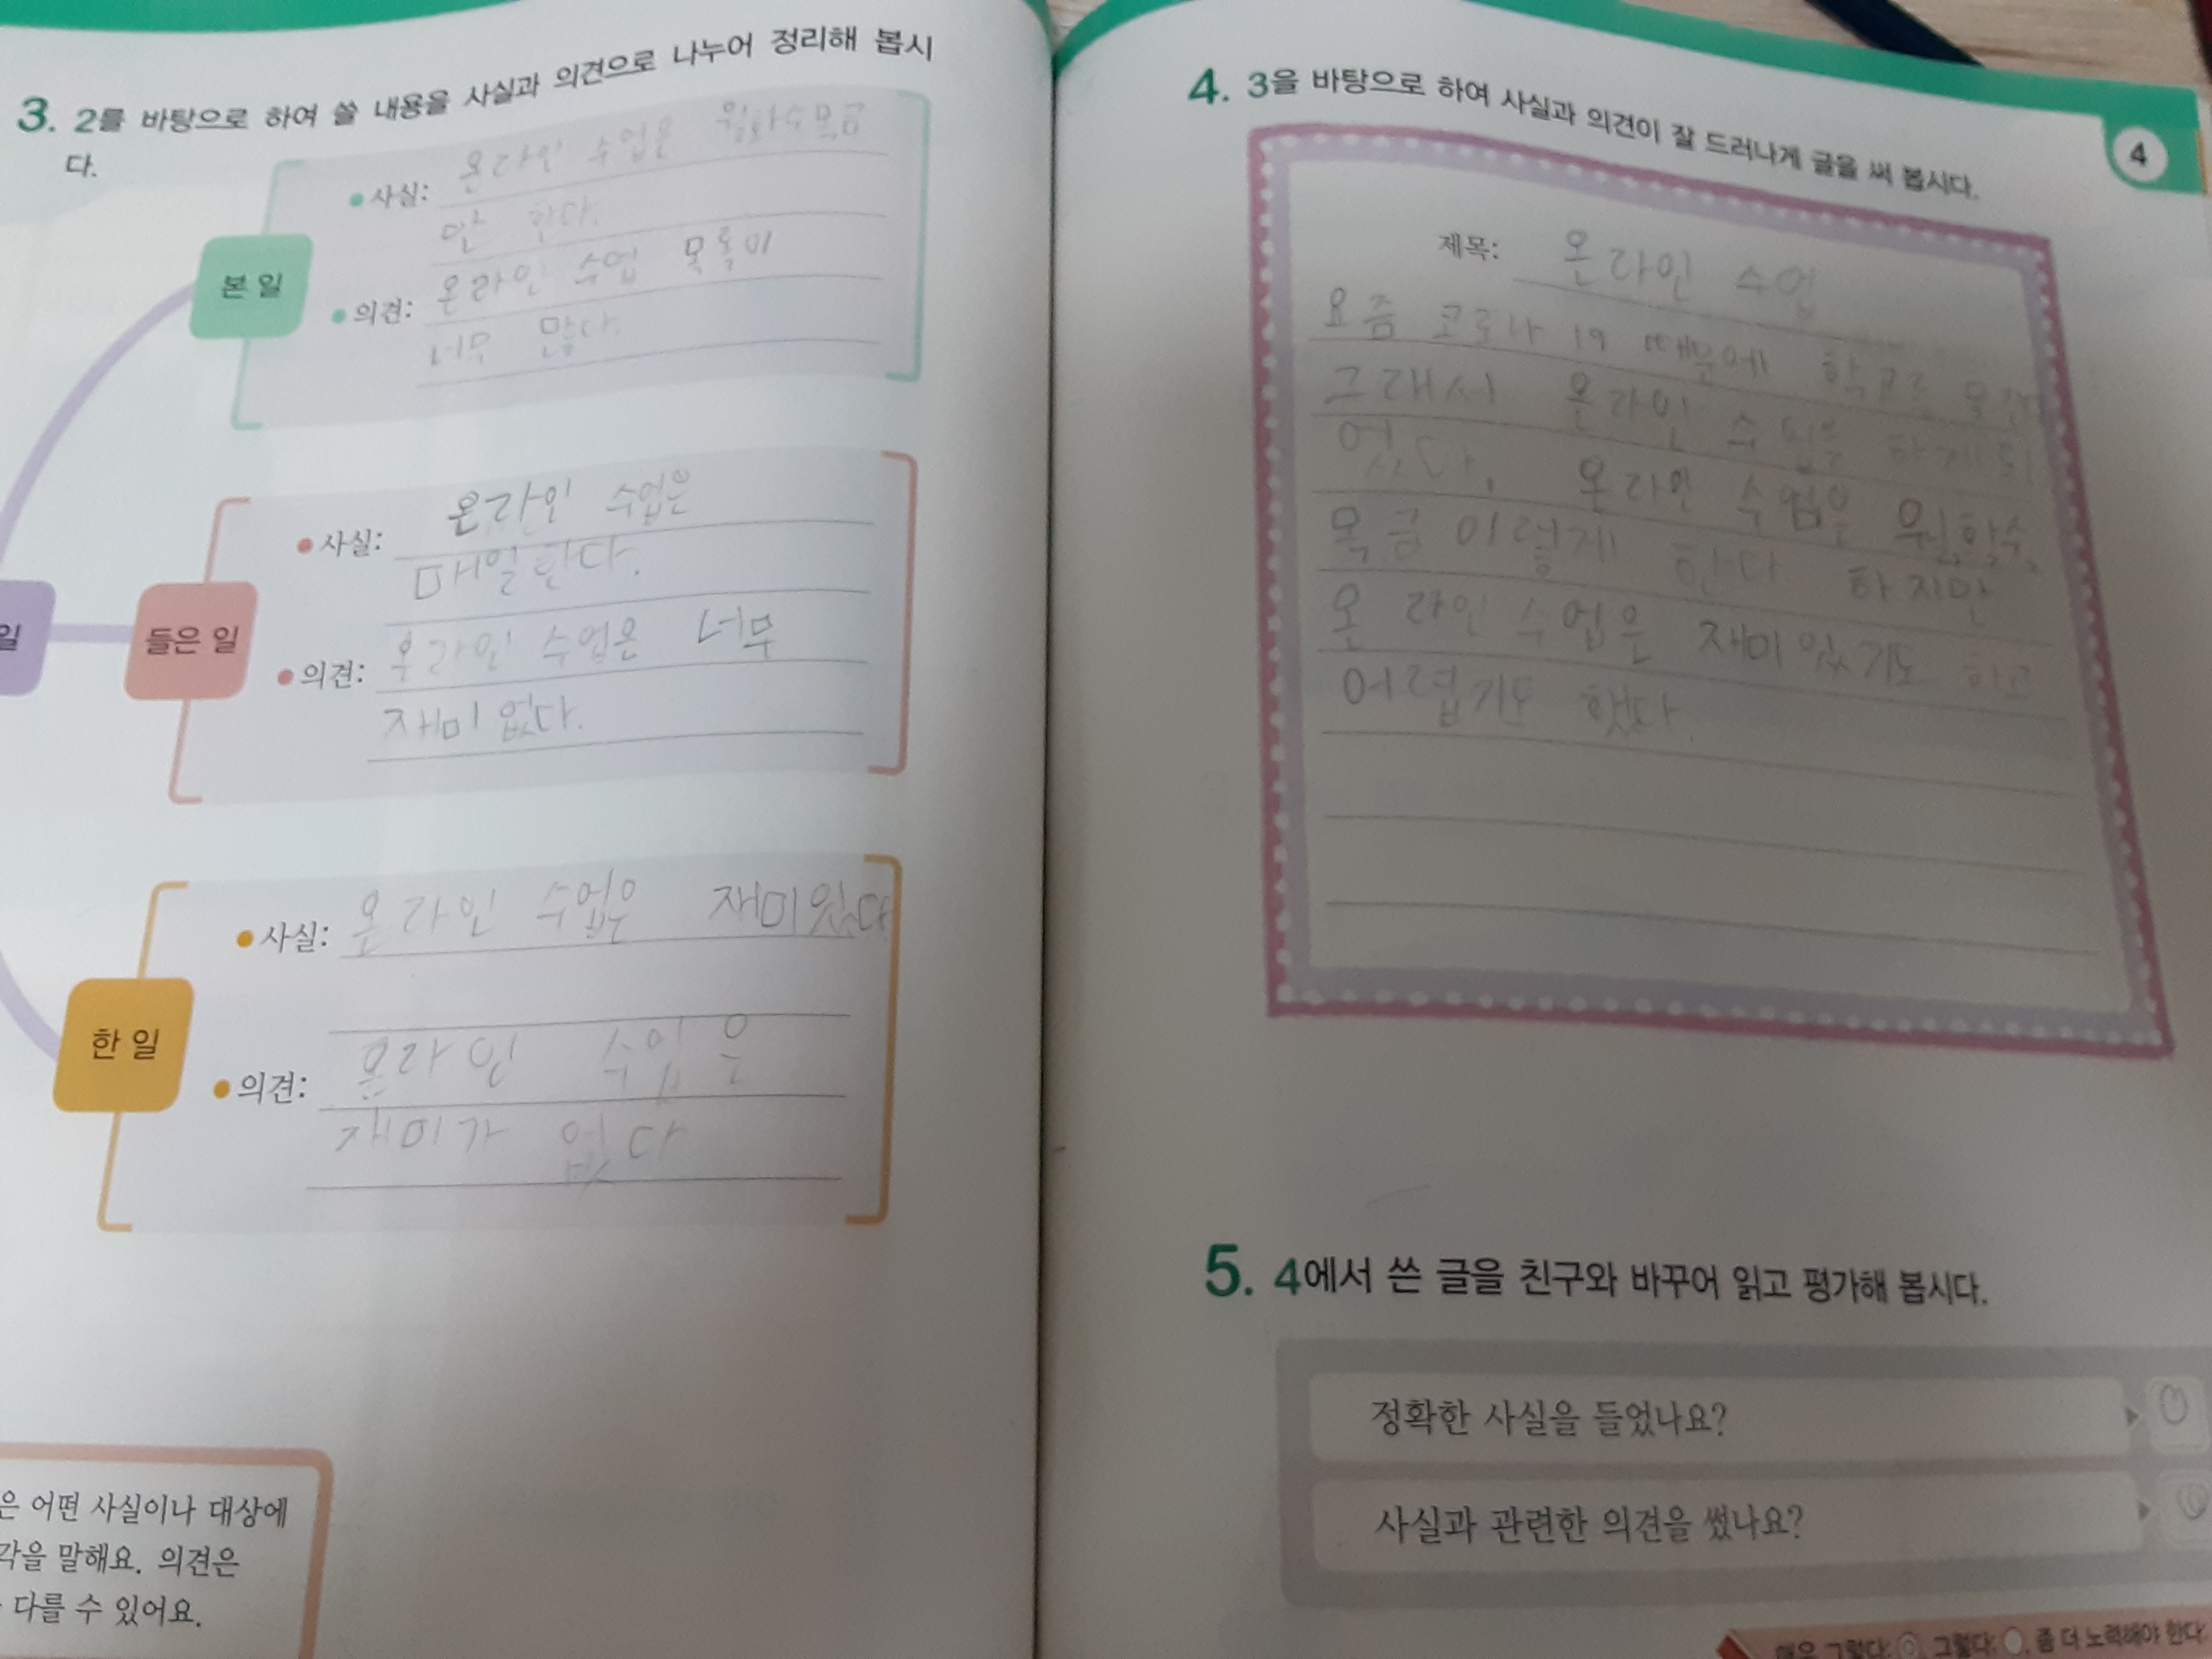 3. 2를 바탕으로 하여 쓸 내용을 사실과 의견으로 나누어 정리해 봅시
다.
본 일
사실: 온라인 수업은 월화수목금
한다.
의견: 온라인 수업 목록이
너무 많다.
일
들은 일
사실: 온라인 수업은
매일한다.
의견: 온라인 수업은 너무
재미 없다.
한 일
사실: 온라인 수업은 재미있다
의견: 온라인 수업은
재미가 없다
은 어떤 사실이나 대상에
각을 말해요. 의견은
다를 수 있어요.
4. 3을 바탕으로 하여 사실과 의견이 잘 드러나게 글을 써 봅시다.
4
제목: 온라인 수업
요즘 코로나 19 때문에 학교를 못간다
그래서 온라인 수업을 하게 되
었다. 온라인 수업은 월,화,수,
목 금 이렇게 한다 하지만
온 라인 수업은 재미있기도 하고
어렵기도 했다.
5. 4에서 쓴 글을 친구와 바꾸어 읽고 평가해 봅시다.
정확한 사실을 들었나요?
사실과 관련한 의견을 썼나요?
매우 그렇다: ◎, 그렇다: ○, 좀 더 노력해야 한다: